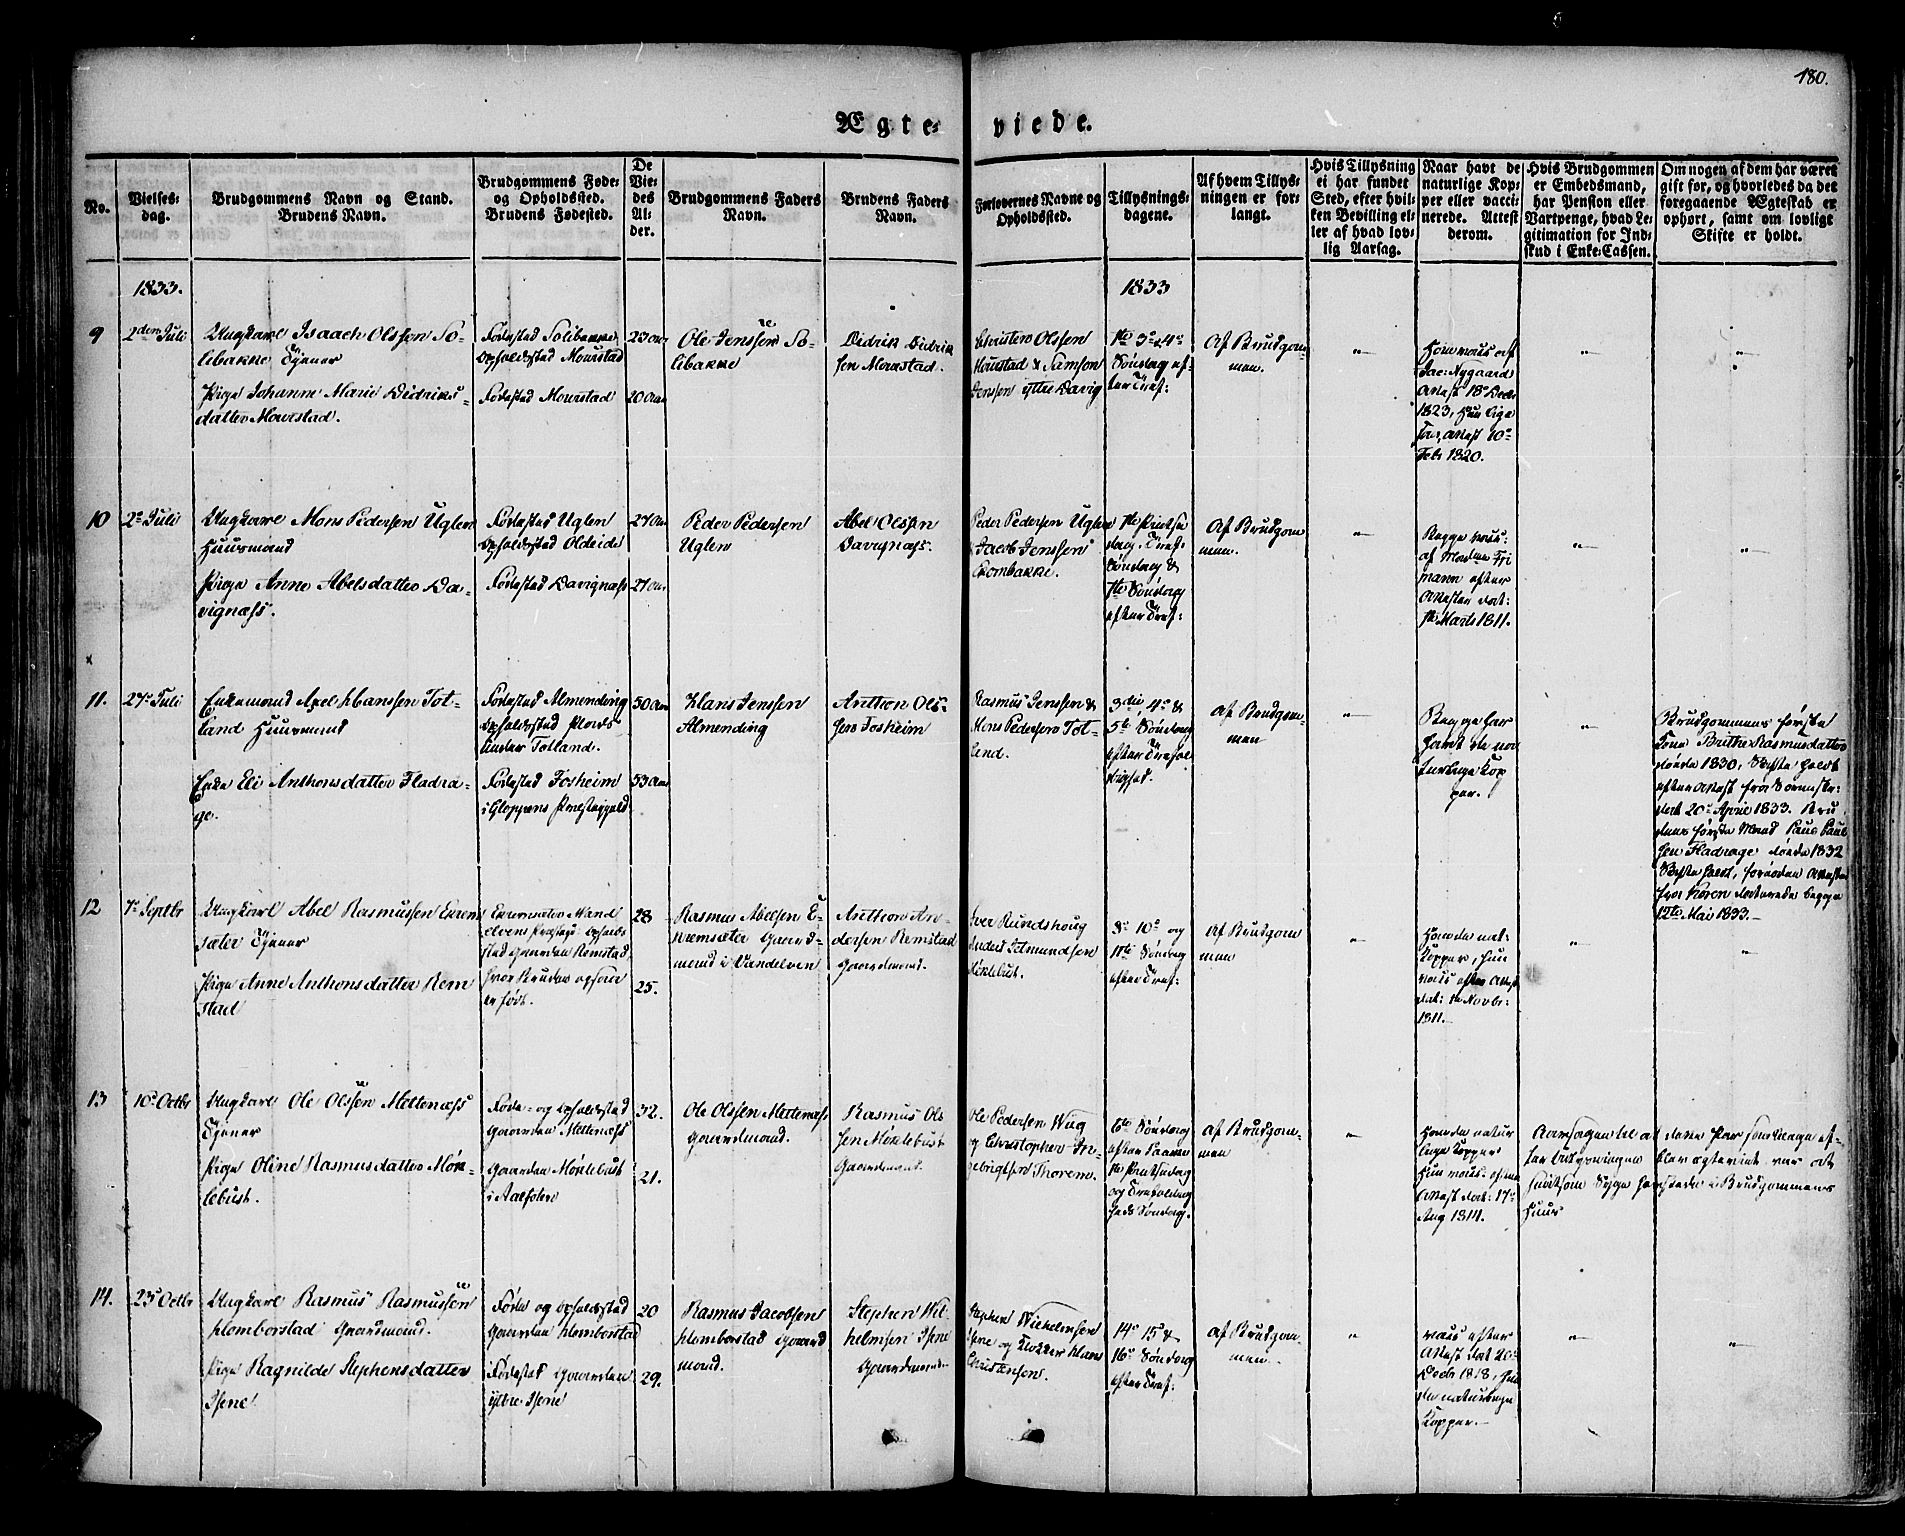 180.
Ægte-
viede.
No.
Vielses-
dag.
Brudgommens Navn og Stand.
Brudens Navn.
Brudgommens Føde-
og Opholdssted.
Brudens Fødested.
De
Vie-
des
Al-
der.
Brudgommens Faders
Navn.
Brudens Faders
Navn.
Forlovernes Navne og
Opholdssted.
Tillysnings-
dagene.
Af hvem Tillys-
ningen er for-
langt.
Hvis Tillysning
ei har fundet
Sted, efter hvil-
ken Bevilling el-
ler af hvad lov-
lig Aarsag.
Naar havt de
naturlige Kop-
per eller vacci-
nerede. Attest
derom.
Hvis Brudgommen
er Embedsmand,
har Pension eller
Vartpenge, hvad Le-
gitimation for Ind-
skud i Enke-Cassen.
Om nogen af dem har været
gift før, og hvorledes da det
foregaaende Ægteskab er
ophørt, samt om lovligt
Skifte er holdt.
1833.
1833
9
2den Juli
Ungkarl Isaach Olssen So-
libakke Tjener
Pige Johanne Marie Didriks-
datter Mourstad.
Fødestad Solibakke
Opholdsstad Mourstad
Fødestad Mourstad
23 Aar
20 Aar
Ole Jenssen So-
libakke
Didrik Didrik
sen Mourstad.
Christen Olssen
Mourstad & Samson
Jenssen yttre Davig
1te 3de & 4de
Søndag ef-
ter Tref:
Af Brudgom-
men.
"
Attest 18de Decbr
1823, Hun lige
Attest 10de
Febr 1820.
"
"
10
2de Juli
Ungkarl Mons Pedersen Uglen
Huusmand
Pige Anne Abelsdatter Da-
vignæss.
Fødestad Uglen
Opholdsstad Oldeide
Fødestad Davignæss
27 Aar
27 Aar
Peder Pedersen
Uglen
Abel Olsen
Davignæss.
Peder Pedersen Uglen
& Jacob Jenssen
1te Pintse
dag, Tref:
Søndag &
1te Søndag
efter Tref:
Af Brudgom
men.
"
Begge vacc:
efter
Attester dat:
Marts 1811.
"
"
11.
27de Juli
Enkemand Axel Hanssen Tot-
land Huusmand
Enke Eli Anthonsdatter Fladra-
ge.
Fødestad Almending
Opholdsstad Plads
under Totland.
Fødestad Fosheim
i Gloppens Præstegjeld
50 Aar
53 Aar
Hans Jenssen
Almending
Anthon Ols-
sen Fosheim
Rasmus Jenssen &
Mons Pedersen Tot-
land.
3die 4de &
5te Søndag
efter Trefol
dighed.
af Brudgom-
men
"
Begge har
havt de na
turlige Kop
per.
"
Brudgommens første
Kone Brithe Rasmusdatter
døde 1830, Skifte holdt
efter Attest fra Sorenskr:
dat 20de April 1833. Bru
dens første Mand Paul
sen Fladrage døde 1832
Skifte holdt, foruden Attester
12te Mai 1833.
12
7de Septbr
Ungkarl Abel Rasmussen Ekrem
sæter Tjener
Pige Anne Anthonsdatter Rem
stad
Ekremsæter Vand
elvens Præstegj: Opholds
stad Gaarden Remstad,
hvor Bruden ogsaa
er født.
28
25.
Rasmus Abelsen E-
kremsæter Gaard-
mand i Vandelven
Anthon An-
dersen Remstad
Gaardmand.
Iver Rundshoug
9de 10de og
11te Søndag
efter Tref:
af Brudgom
men
"
Han de nat:
Kopper, Hun
vacc: efter Attest
dat: Novbr:
1811.
"
"
13
16de Octbr
Ungkarl Ole Olssen Meltenæss
Tjener
Pige Oline Rasmusdatter Møk-
lebust.
Føde- og Opholdsstad
Gaarden Meltenæss
Gaarden Møklebust
i Aalfoten
32.
21.
Ole Olssen Meltenæss
Gaardmand.
Rasmus Ols
sen Møklebust
Gaardmand.
Ole Pedersen Wiig
og Christopher In-
gebrigtsen Thorem.
6te Søndag
efter Paaske
1te Pintsedag
og Trefoldig
heds Søndag.
af Brudgom-
men
"
Han de natur
lige Kopper
Hun vacc: efter
Attest dat: 17de
Aug 1814.
Aarsagen til at dette Par saa længe ef-
ter Lysningen blev ægteviet var at
Sygd herskede i Brudgommens
Huus
14.
23de Octbr
Ungkarl Rasmus Rasmussen
Homborstad Gaardmand.
Pige Ragnilde Stephensdatter
Isene
Føde og Opholdsstad
Gaarden Homborstad
Fødestad Gaarden
ytbre Isene
20
29.
Rasmus Jacobsen
Homborstad Gaard
mand.
Stephen Wil
helmsen Isene
Gaardmand
Stephen Wilhelmsen
Isene og Hans
Christensen.
14de 15de &
16de Søndag
efter Tref:
af Brudgom-
men.
"
vacc: efter
Attest dat 20de
Decbr 1818, Hun
de naturlige
Kopper.
"
"